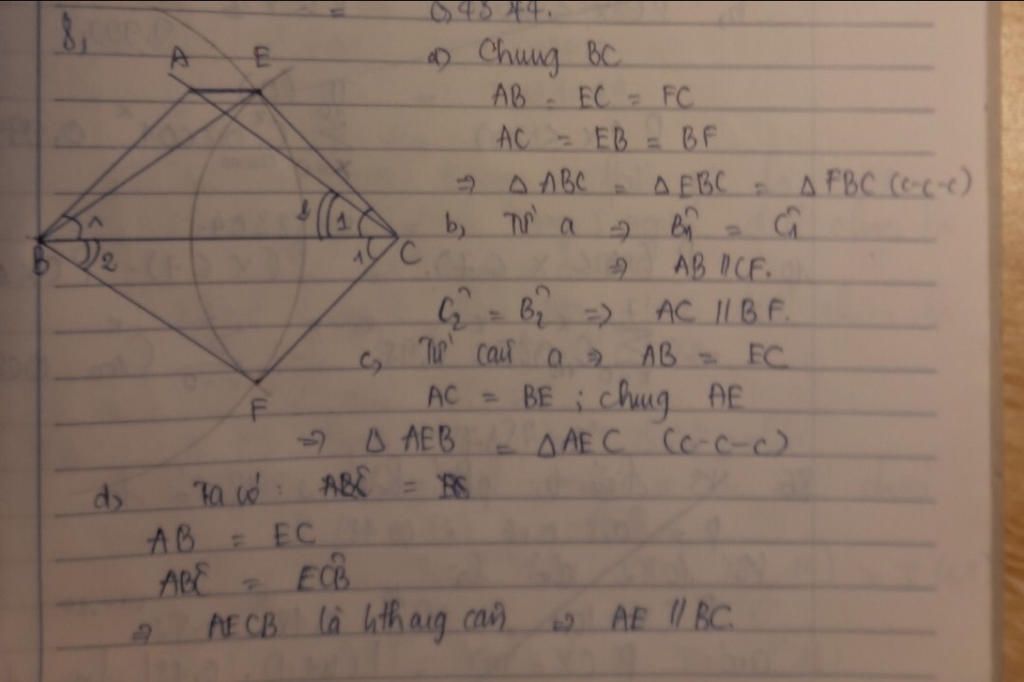 = 0,4344.
8,
A E
a) Chung BC
AB = EC = FC
AC = EB = BF
⇒ Δ ABC = Δ EBC = Δ FBC (c-c-c)
1 2 1
b, Từ a ⇒ B̂1 = Ĉ1
B 2 1 C
⇒ AB // CF.
Ĉ2 = B̂2 ⇒ AC // BF.
c, Từ câu a ⇒ AB = EC
F
AC = BE ; chung AE
⇒ Δ AEB = Δ AEC (c-c-c)
d, Ta có : ABC =
AB = EC
ABC = ECB
⇒ AECB là hthang cân ⇒ AE // BC.